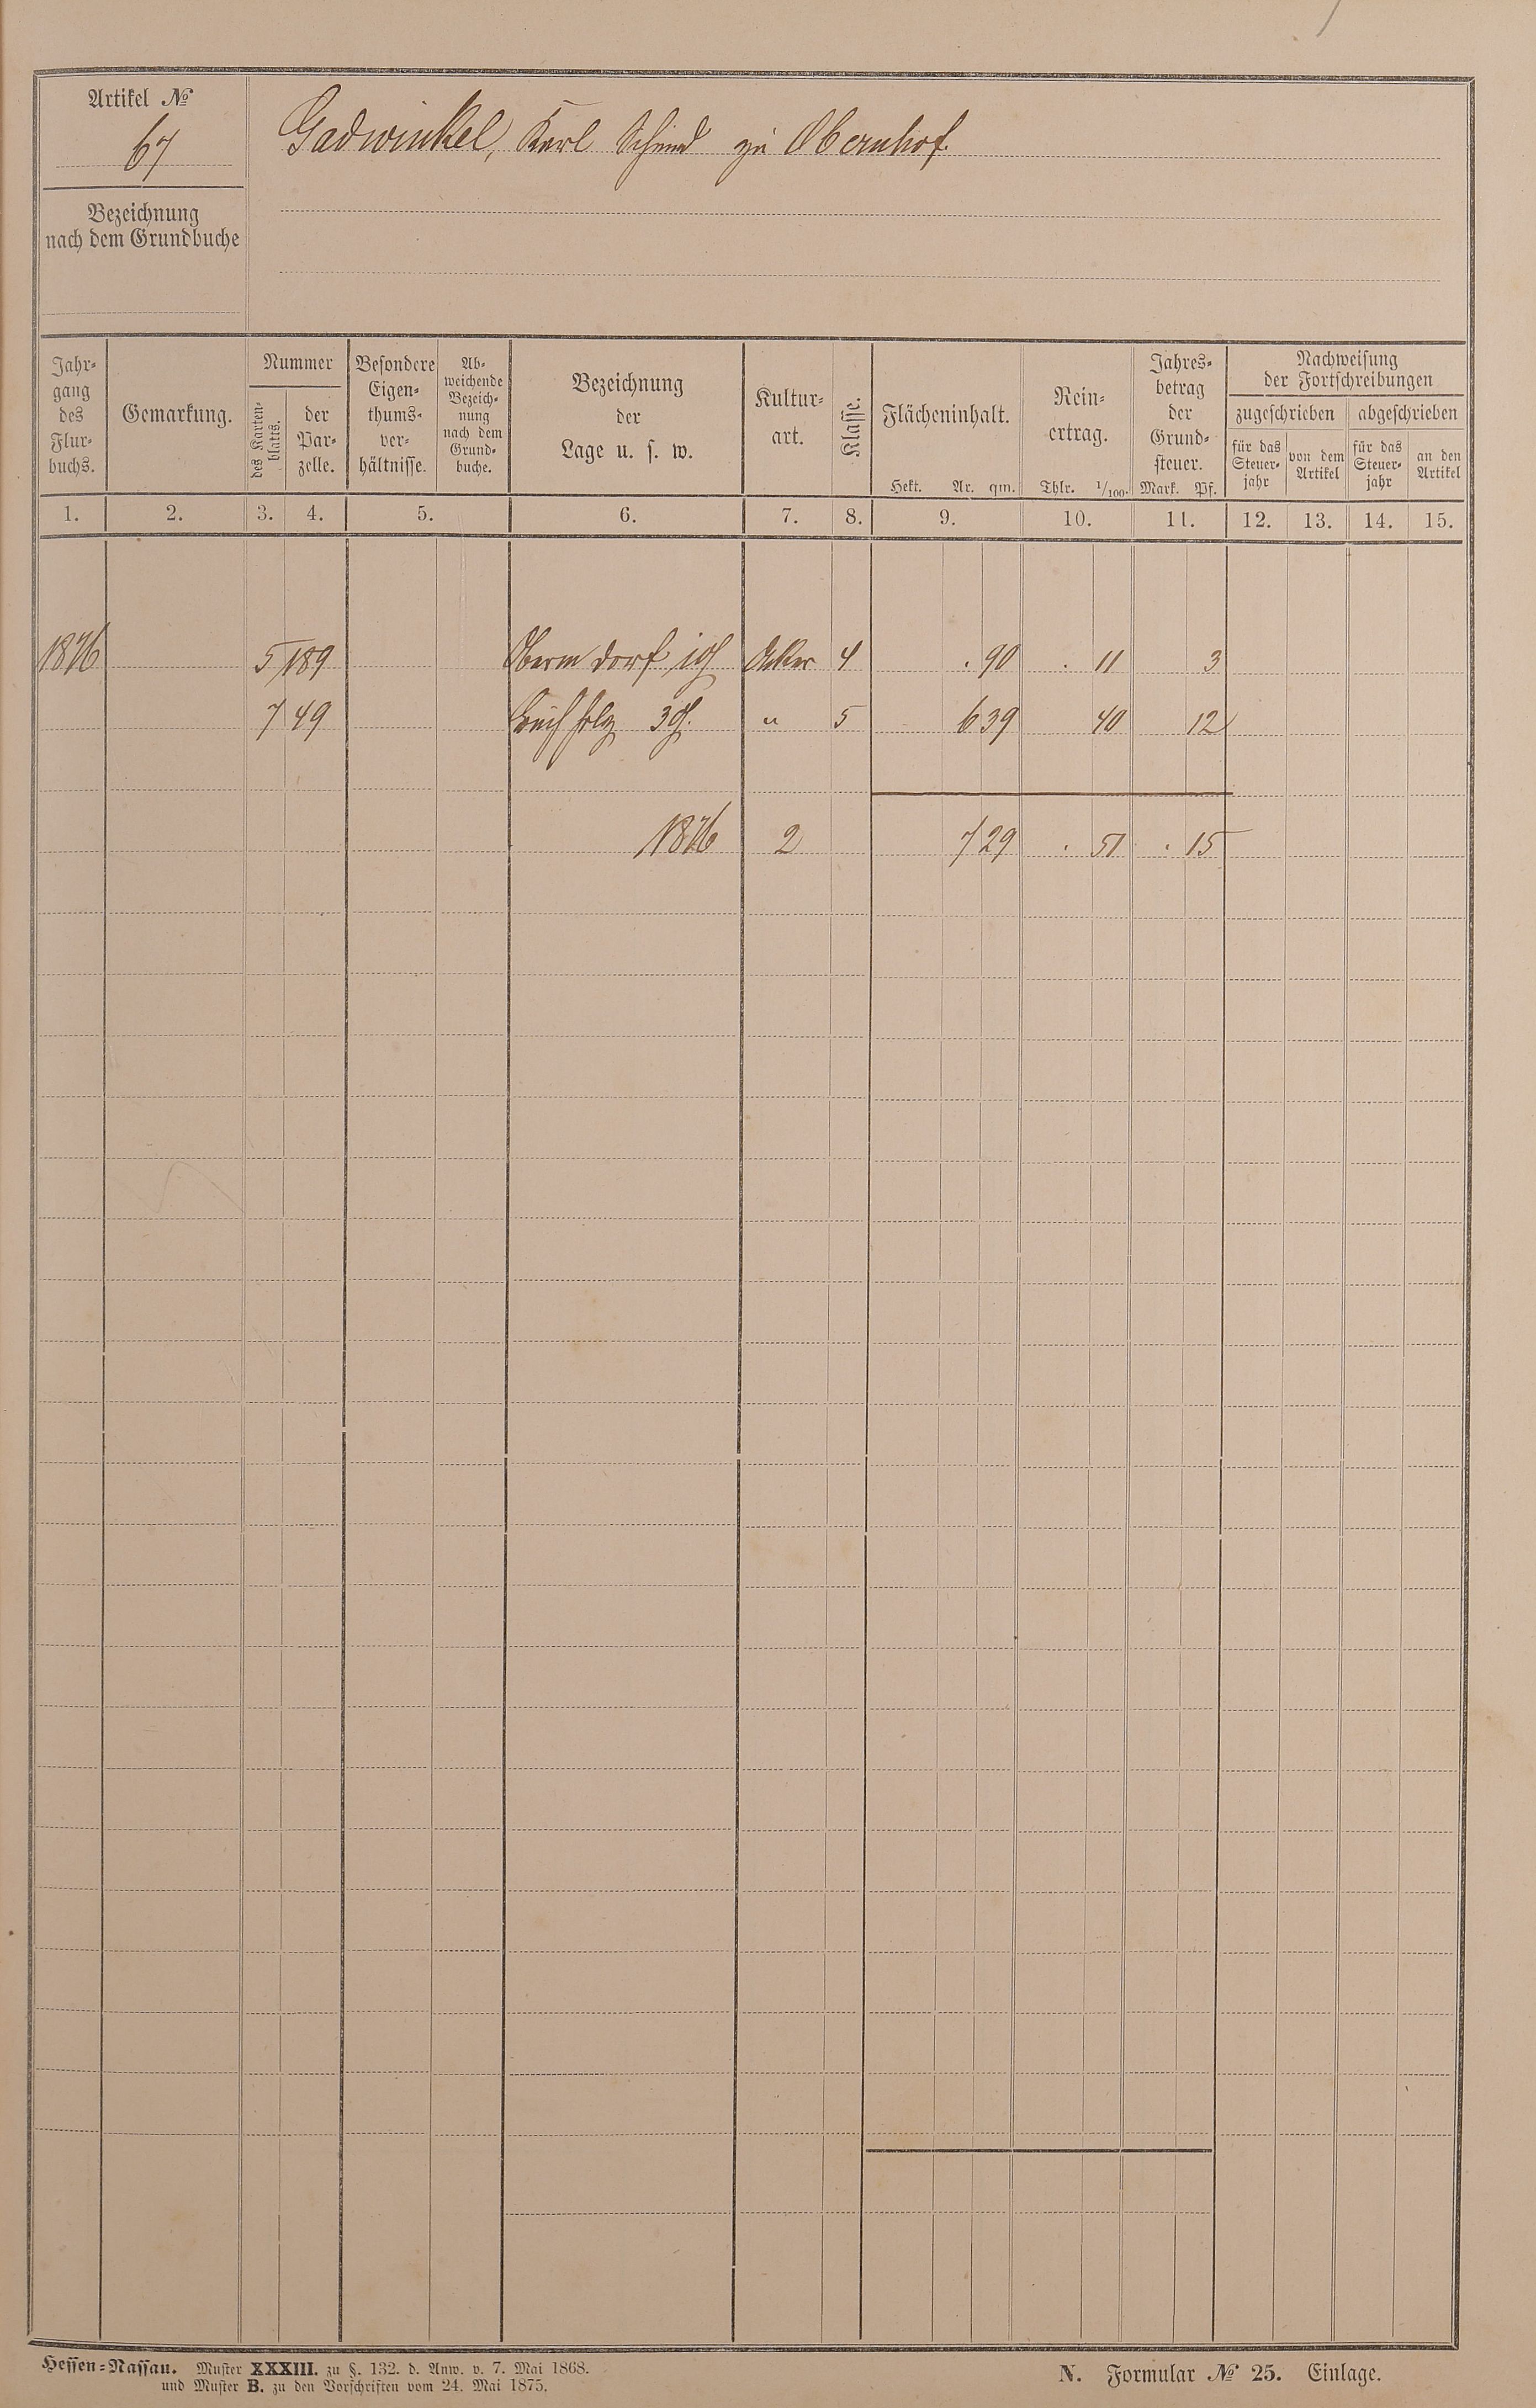 Artikel №
67
Gadwinkel, Karl Schmid zu Obernhof.
Bezeichnung
nach dem Grundbuche
Jahr-
gang
des
Flur-
buchs.
Gemarkung.
Nummer
des Karten-
blatts.
der
Par-
zelle.
Besondere
Eigen-
thums-
ver-
hältnisse.
Ab-
weichende
Bezeich-
nung
nach dem
Grund-
buche.
Bezeichnung
der
Lage u. s. w.
Kultur-
art.
Klasse.
Flächeninhalt.
Hekt. Ar. qm.
Rein-
ertrag.
Thlr. 1/100.
Jahres-
betrag
der
Grund-
steuer.
Mark. Pf.
Nachweisung
der Fortschreibungen
zugeschrieben abgeschrieben
für das
Steuer-
jahr
von dem
Artikel
für das
Steuer-
jahr
an den
Artikel
1. 2. 3. 4. 5. 6. 7. 8. 9. 10. 11. 12. 13. 14. 15.
1876 5 189 Oberm Dorf Acker 4 . 90 . 11 3
7 49 Buchholz " 5 6 39 40 12
1876 2 7 29 . 51 . 15
Hessen-Nassau. Muster XXXIII. zu §. 132. d. Anw. v. 7. Mai 1868.
und Muster B. zu den Vorschriften vom 24. Mai 1875.
N. Formular № 25. Einlage.